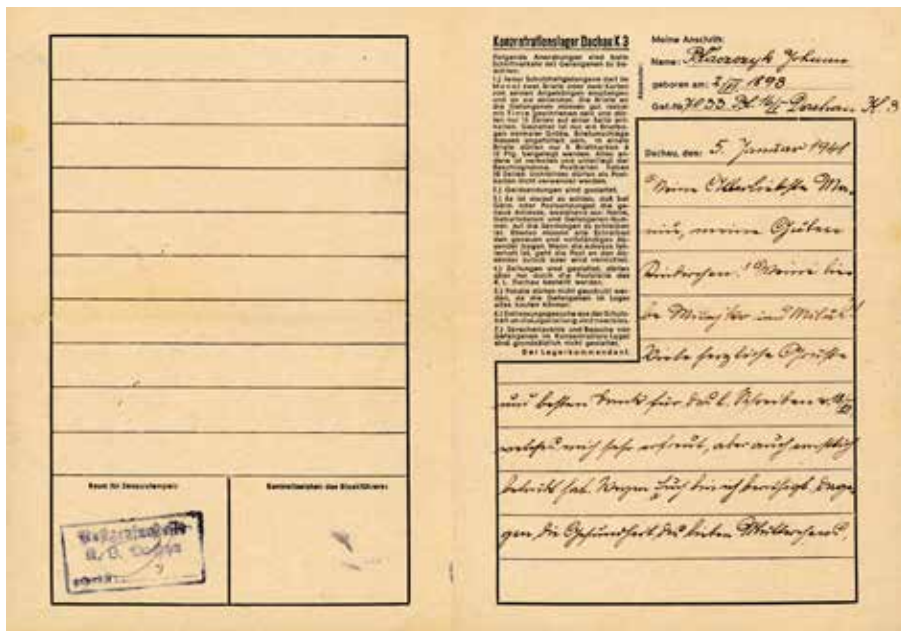 Konzentrationslager Dachau K 3
Folgende Anordnungen sind beim
Schriftverkehr mit Gefangenen zu be-
achten:
1.) Jeder Schutzhaftgefangene darf im
Monat zwei Briefe oder zwei Karten
von seinen Angehörigen empfangen
und an sie absenden. Die Briefe an
die Gefangenen müssen gut lesbar
mit Tinte geschrieben sein und dür-
fen nur 15 Zeilen auf einer Seite ent-
halten. Gestattet ist nur ein Briefbo-
gen normaler Größe. Briefumschläge
müssen ungefüttert sein. In einem
Briefe dürfen nur 5 Briefmarken à
12 Pfg. beigelegt werden. Alles an-
dere ist verboten und unterliegt der
Beschlagnahme. Postkarten haben
10 Zeilen. Lichtbilder dürfen als Post-
karten nicht verwendet werden.
2.) Geldsendungen sind gestattet.
3.) Es ist darauf zu achten, daß bei
Geld- oder Postsendungen die ge-
naue Adresse, bestehend aus: Name,
Geburtsdatum und Gefangenen-Num-
mer, auf die Sendungen zu schreiben
ist.
4.) Zeitungen sind gestattet, dürfen
aber nur durch die Poststelle des
K. L. Dachau bestellt werden.
5.) Pakete dürfen nicht geschickt wer-
den, da die Gefangenen im Lager
alles kaufen können.
6.) Entlassungsgesuche aus der Schutz-
haft an die Lagerleitung sind zwecklos.
7.) Sprecherlaubnis und Besuche von
Gefangenen im Konzentrations-Lager
sind grundsätzlich nicht gestattet.
Der Lagerkommandant.
Absender:
Meine Anschrift:
Name: Johann
geboren am: 1893
Gef.-Nr. Dachau K. 3
Dachau, den: 5. Januar 1941
Meine Allerliebste Ma-
mu, meine Guten
Kinderchen! Meine lie-
be und
Viele herzliche Grüße
und besten Dank für das l. Schreiben v.
welches mich sehr erfreut, aber auch ernstlich
betrübt hat. Wegen Euch bin ich beruhigt, dage-
gen die Gesundheit des lieben Mütterchens,
Raum für Zensurstempel:
Kontrollzeichen des Blockführers:
Postzensurstelle
K. L. Dachau
geprüft